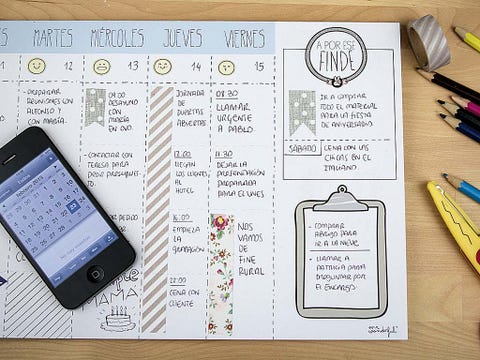 MARTES
MIÉRCOLES
JUEVES
VIERNES
11
12
13
14
15
-PREPARAR
REUNIONES CON
ALFONSO Y
MARÍA.
09:00
DESAYUNO
CON
MARÍA
-CONTACTAR CON
TERESA PARA
PEDIR PRESUPUES-
TO.
PEDIDO
MAMÁ
JORNADA
DE
PUERTAS
ABIERTAS
12:00
LLEGAN
LOS CLIENTES
AL
HOTEL
16:00
EMPIEZA
LA
22:00
CENA CON
CLIENTE
08:30
LLAMAR
URGENTE
A PABLO.
11:30
DEJAR LA
PRESENTACIÓN
PREPARADA
PARA EL LUNES
NOS
VAMOS
DE
FINE
RURAL
A POR ESE
FINDE
IR A COMPRAR
TODO EL MATERIAL
PARA LA FIESTA
DE ANIVERSARIO.
SÁBADO
CENA CON LAS
CHICAS EN EL
ITALIANO
- COMPRAR
ABRIGO PARA
IR A LA NIEVE
- LLAMAR A
PATRICIA PARA
PREGUNTAR POR
EL ENCARGO.